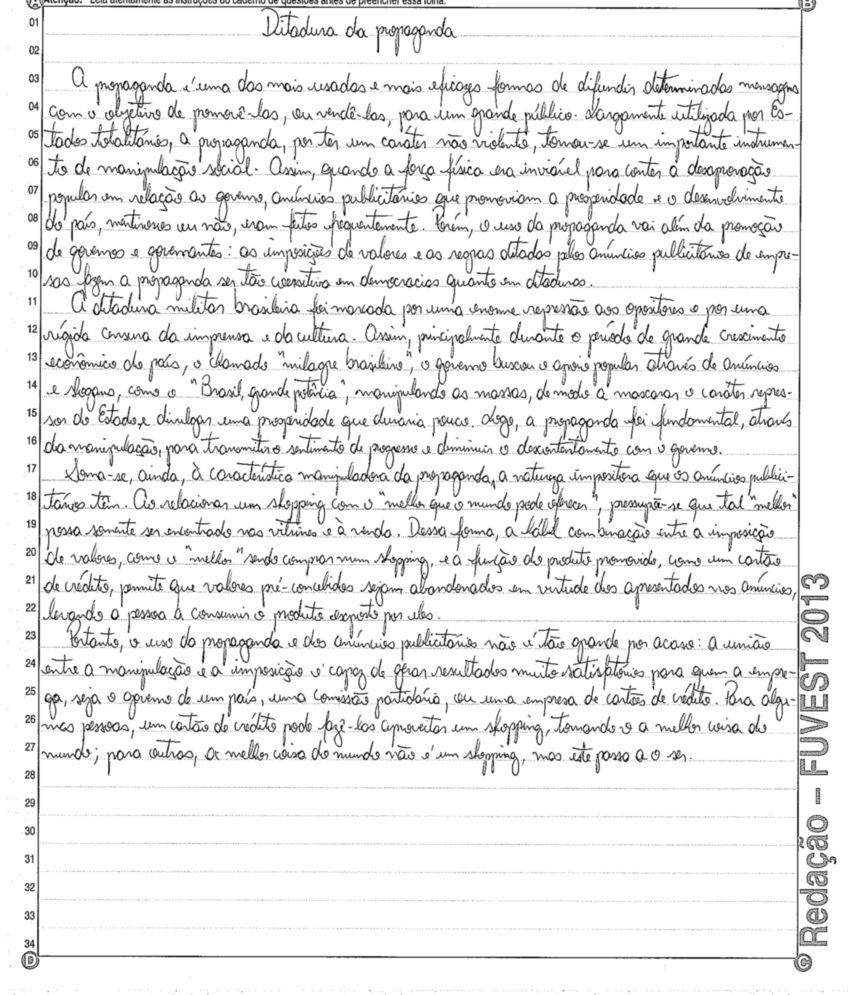 Atenção: Leia atentamente as instruções do caderno de questões antes de preencher essa folha.
A
B
01 Ditadura da propaganda
02
03 A propaganda é uma das mais usadas e mais eficazes formas de difundir determinadas mensagens
04 com o objetivo de promovê-las, ou vendê-las, para um grande público. Largamente utilizada por Es-
05 tados totalitários, a propaganda, por ter um caráter não violento, tornou-se um importante instrumen-
06 to de manipulação social. Assim, quando a força física era inviável para conter a desaprovação
07 popular em relação ao governo, anúncios publicitários que promoviam a prosperidade e o desenvolvimento
08 do país, mentirosos ou não, eram feitos frequentemente. Porém, o uso da propaganda vai além da promoção
09 de governos e governantes: as imposições de valores e as regras ditadas pelos anúncios publicitários de empre-
10 sas fazem a propaganda ser tão coersitiva em democracias quanto em ditaduras.
11 A ditadura militar brasileira foi marcada por uma enorme repressão aos opositores e por uma
12 rígida censura da imprensa e da cultura. Assim, principalmente durante o período de grande crescimento
13 econômico do país, o chamado "milagre brasileiro", o governo buscou o apoio popular através de anúncios
14 e slogans, como o "Brasil, grande potência", manipulando as massas, de modo a mascarar o caráter repres-
15 sor do Estado e divulgar uma prosperidade que duraria pouco. Logo, a propaganda foi fundamental, através
16 da manipulação, para transmitir o sentimento de progresso e diminuir o descontentamento com o governo.
17 Soma-se, ainda, à característica manipuladora da propaganda, a natureza impositora que os anúncios publici-
18 tários têm. Ao relacionar um shopping com o "melhor que o mundo pode oferecer", pressupõe-se que tal "melhor"
19 possa somente ser encontrado nas vitrines e à venda. Dessa forma, a hábil combinação entre a imposição
20 de valores, como o "melhor" sendo comprar num shopping, e a função do produto promovido, como um cartão
21 de crédito, permite que valores pré-concebidos sejam abandonados em virtude dos apresentados nos anúncios,
22 levando a pessoa à consumir o produto exposto por eles.
23 Portanto, o uso da propaganda e dos anúncios publicitários não é tão grande por acaso: a união
24 entre a manipulação e a imposição é capaz de gerar resultados muito satisfatórios para quem a empre-
25 ga, seja o governo de um país, uma comissão partidária, ou uma empresa de cartões de crédito. Para algu-
26 mas pessoas, um cartão de crédito pode fazê-las aproveitar um shopping, tornando-o a melhor coisa do
27 mundo; para outras, a melhor coisa do mundo não é um shopping, mas este passa a o ser.
28
29
30
31
32
33
34
D
C
© Redação – FUVEST 2013